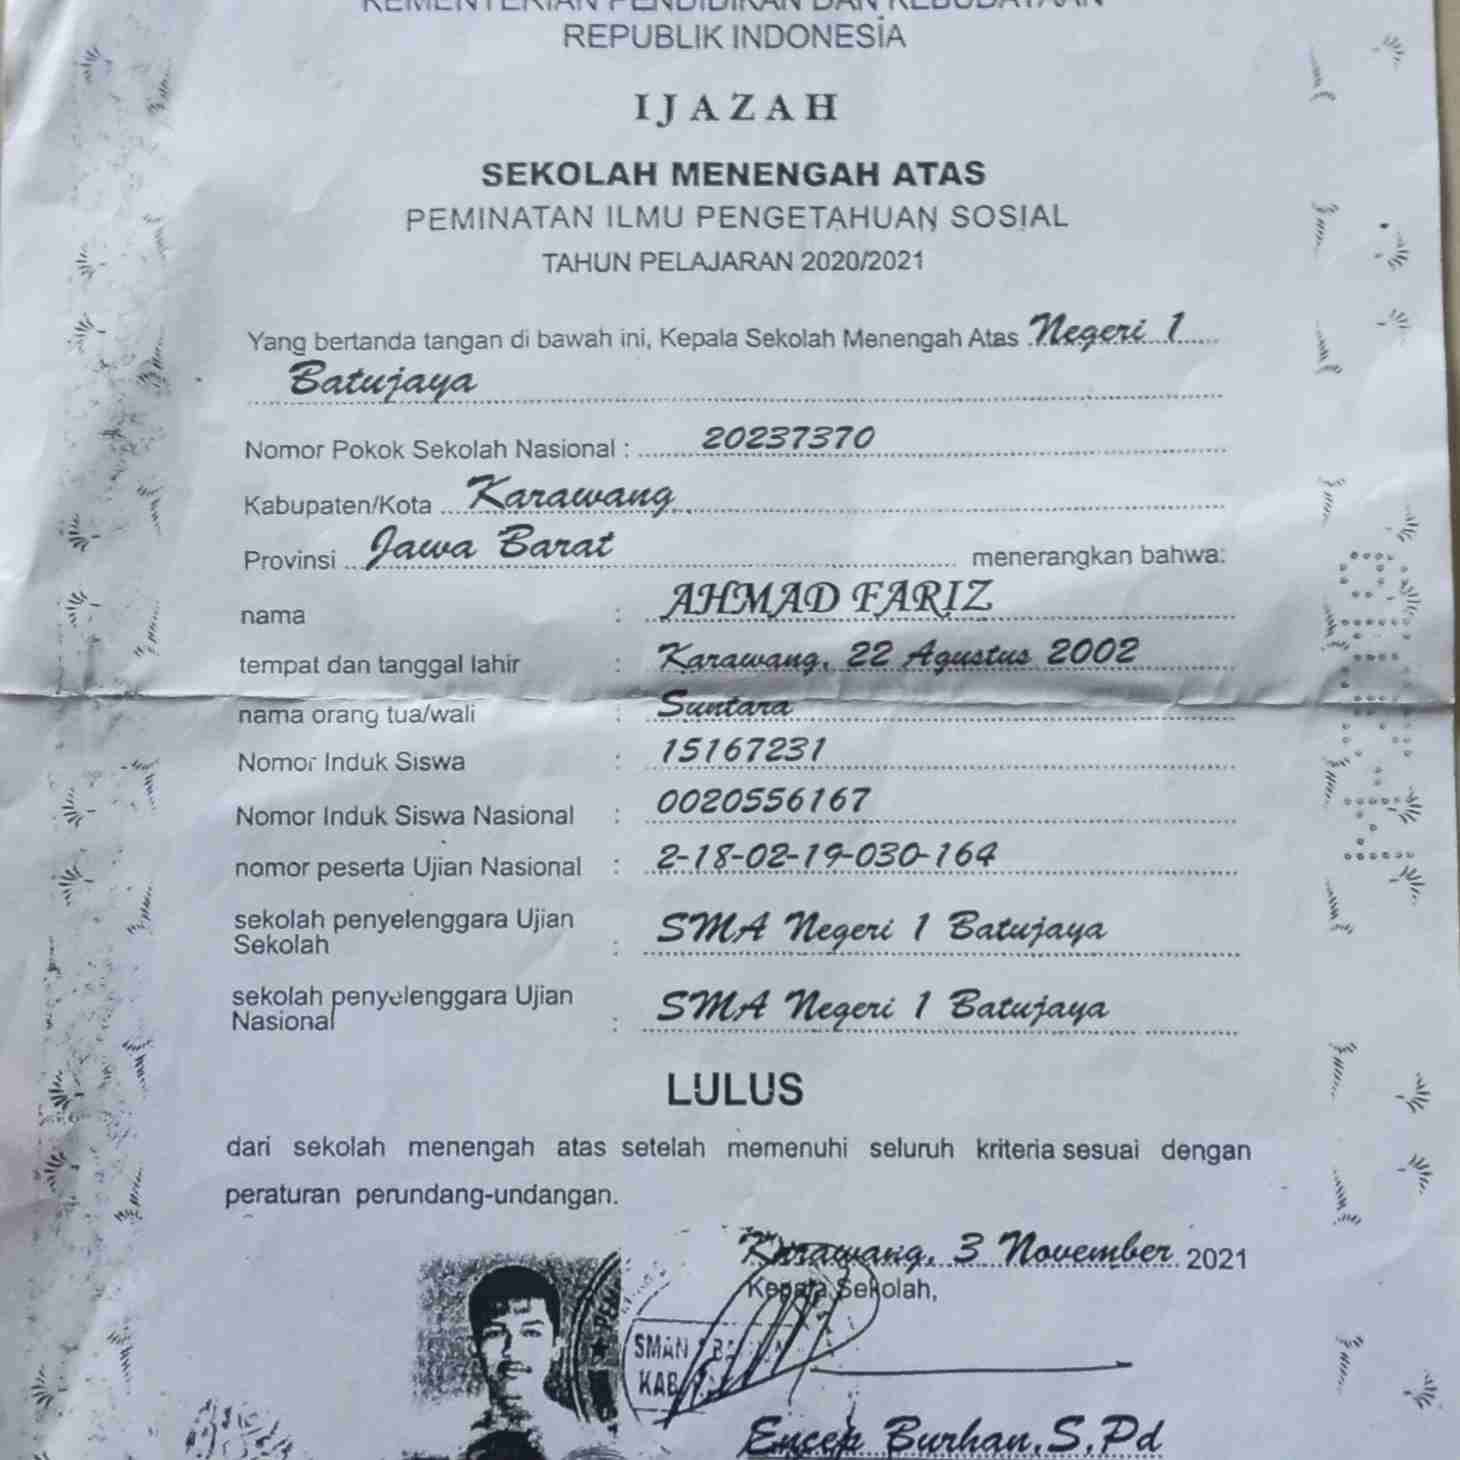 KEMENTERIAN PENDIDIKAN DAN KEBUDAYAAN
REPUBLIK INDONESIA
IJAZAH
SEKOLAH MENENGAH ATAS
PEMINATAN ILMU PENGETAHUAN SOSIAL
TAHUN PELAJARAN 2020/2021
Yang bertanda tangan di bawah ini, Kepala Sekolah Menengah Atas Negeri 1
Batujaya
Nomor Pokok Sekolah Nasional : 20237370
Kabupaten/Kota Karawang
Provinsi Jawa Barat menerangkan bahwa:
nama : AHMAD FARIZ
tempat dan tanggal lahir : Karawang, 22 Agustus 2002
nama orang tua/wali : Suntara
Nomor Induk Siswa : 15167231
Nomor Induk Siswa Nasional : 0020556167
nomor peserta Ujian Nasional : 2-18-02-19-030-164
sekolah penyelenggara Ujian
Sekolah : SMA Negeri 1 Batujaya
sekolah penyelenggara Ujian
Nasional : SMA Negeri 1 Batujaya
LULUS
dari sekolah menengah atas setelah memenuhi seluruh kriteria sesuai dengan
peraturan perundang-undangan.
Karawang, 3 November 2021
Kepala Sekolah,
SMAN
KAB
Encep Burhan, S.Pd